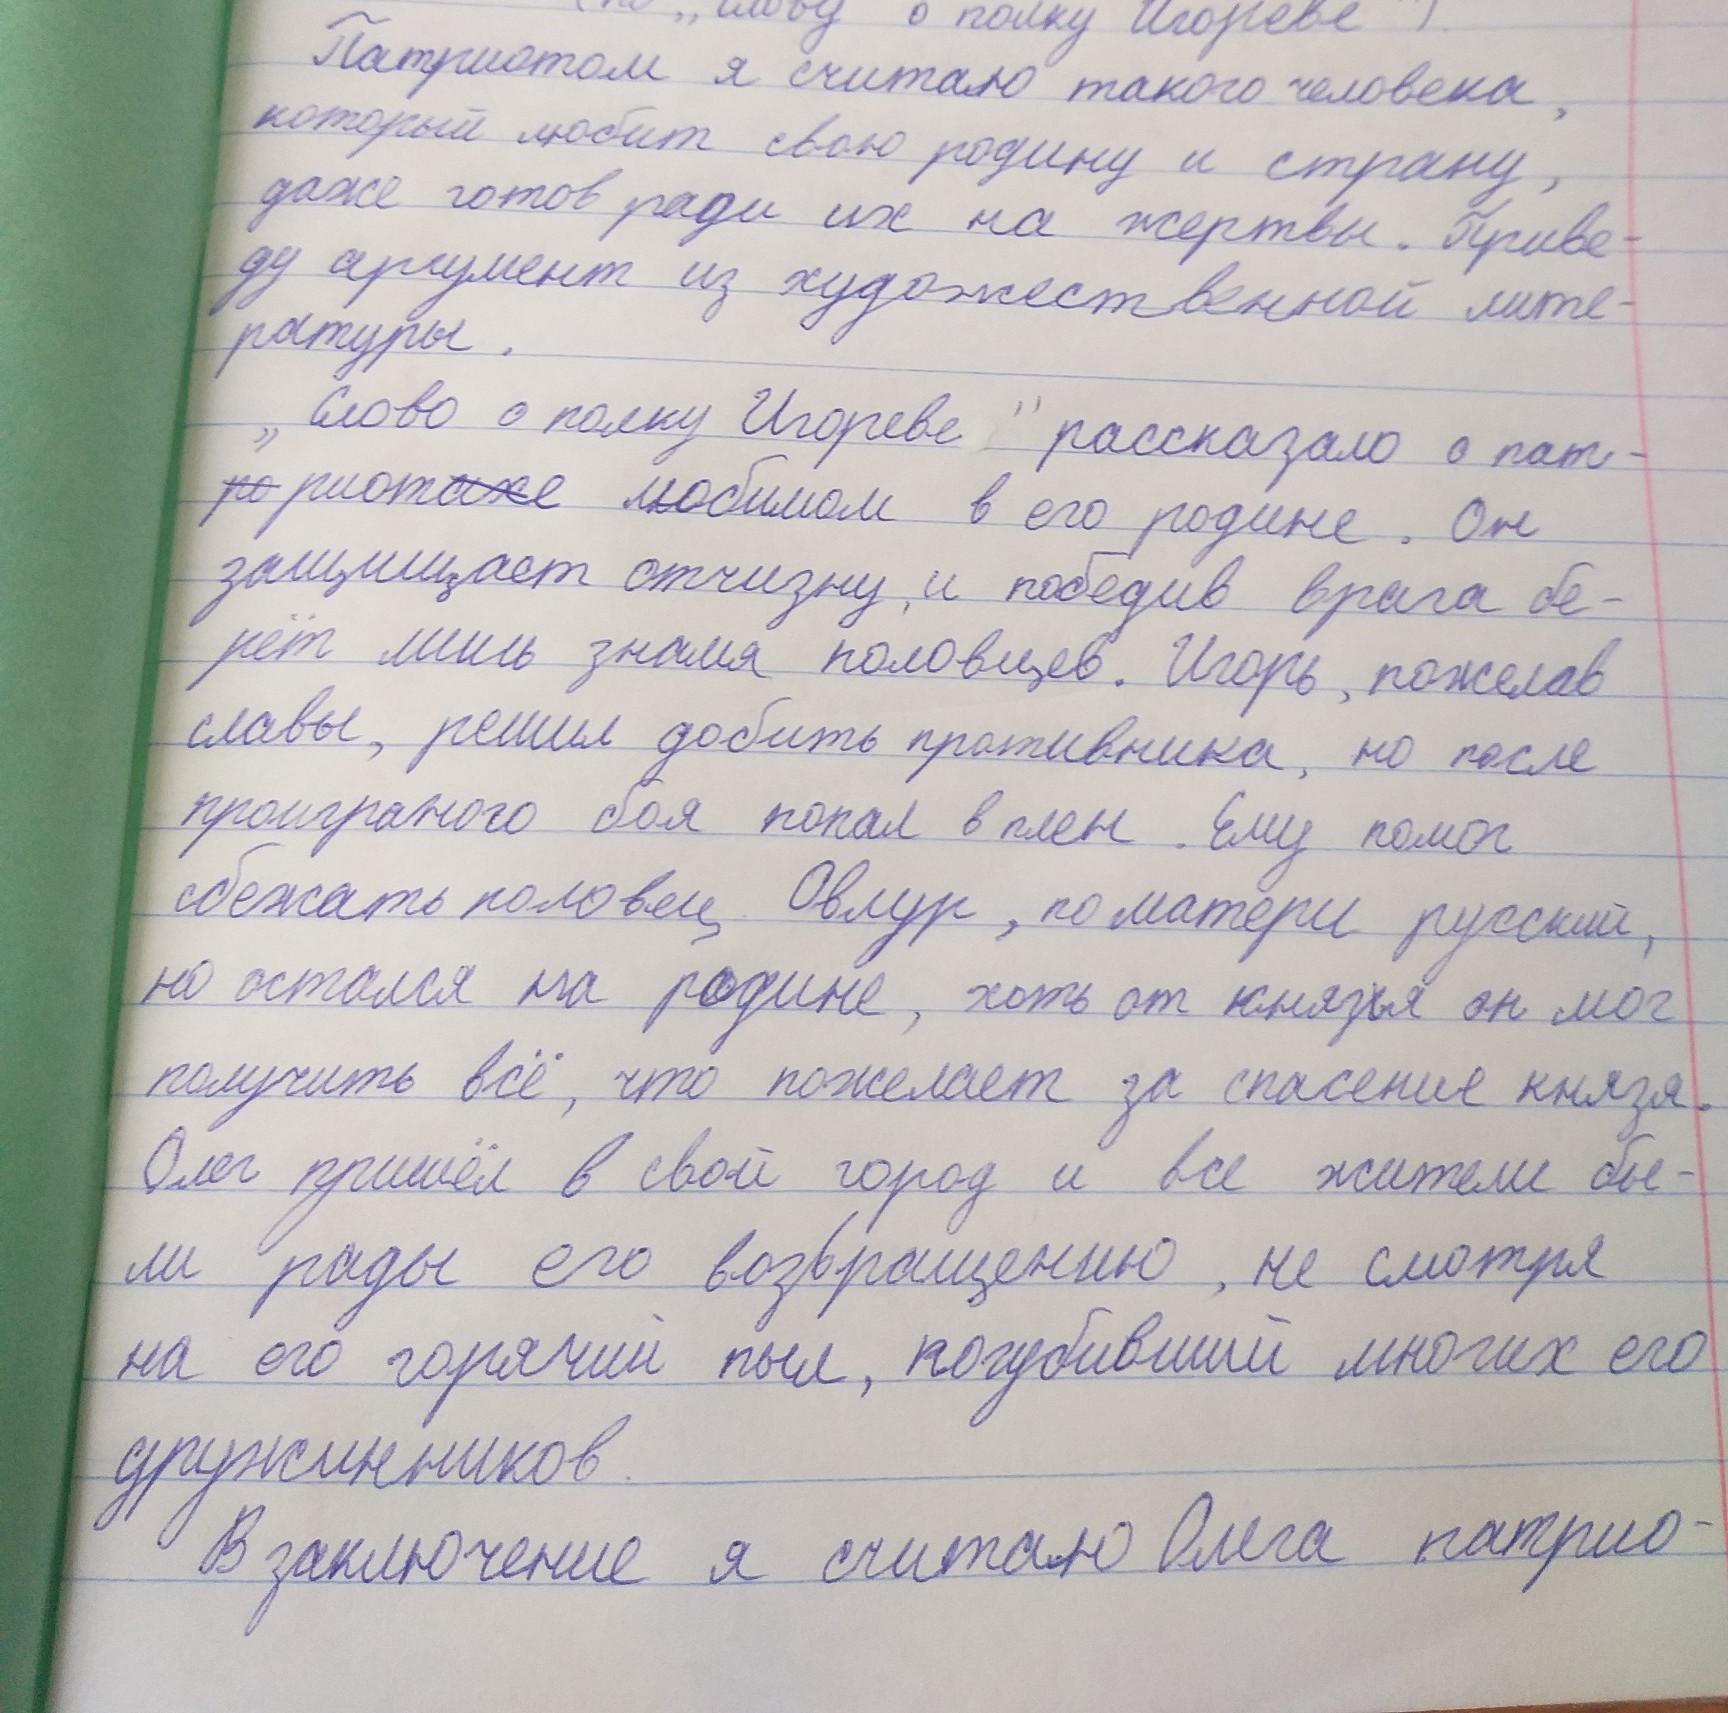 (по „Слову о полку Игореве").
Патриотом я считаю такого человека,
который любит свою родину и страну,
даже готов ради их на жертвы. Приве-
ду аргумент из художественной лите-
ратуры.
„Слово о полку Игореве" рассказало о пат-
риоте любимом в его родине. Он
защищает отчизну, и победив врага бе-
рёт лишь знамя половцев. Игорь, пожелав
славы, решил добить противника, но после
проиграного боя попал в плен. Ему помог
сбежать половец Овлур, по матери русский,
но остался на родине, хоть от князья он мог
получить всё, что пожелает за спасение князя.
Олег пришёл в свой город и все жители бы-
ли рады его возвращению, не смотря
на его горячий пыл, погубивший многих его
дружинников.
В заключение я считаю Олега патрио-